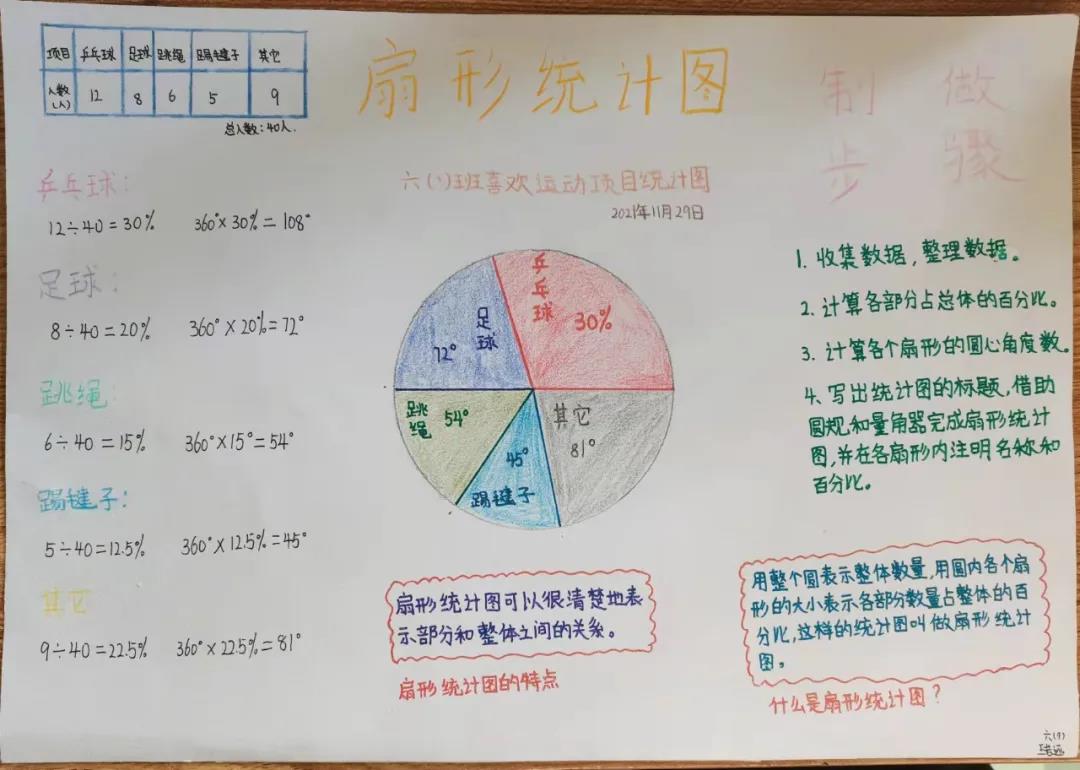 项目 乒乓球 足球 跳绳 踢毽子 其它
人数(人) 12 8 6 5 9
总人数:40人.
扇形统计图
制做
步骤
六(1)班喜欢运动项目统计图
2021年11月29日
乒乓球:
12÷40=30% 360°×30%=108°
足球:
8÷40=20% 360°×20%=72°
跳绳:
6÷40=15% 360°×15°=54°
踢毽子:
5÷40=12.5% 360°×12.5%=45°
其它
9÷40=22.5% 360°×22.5%=81°
乒乓球
30%
足球
72°
跳绳
54°
45°
踢毽子
其它
81°
1. 收集数据,整理数据。
2. 计算各部分占总体的百分比。
3. 计算各个扇形的圆心角度数。
4. 写出统计图的标题,借助
圆规和量角器完成扇形统计
图,并在各扇形内注明名称和
百分比。
扇形统计图可以很清楚地表
示部分和整体之间的关系。
扇形统计图的特点
用整个圆表示整体数量,用圆内各个扇
形的大小表示各部分数量占整体的百
分比,这样的统计图叫做扇形统计
图。
什么是扇形统计图?